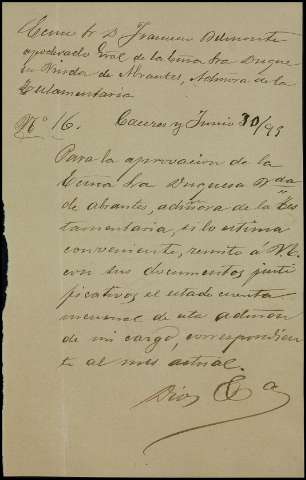 Excmo Sr D Francisco Belmonte
apoderado Gral de la Excma Sra Duque-
sa Viuda de Abrantes, Admora de la
Testamentaria
Nº 16. Caceres y Junio 30/93
Para la aprovacion de la
Excma Sra Duquesa Vda
de Abrantes, admora de la Tes
tamentaria, si lo estima
conveniente, remito á V.E.
con sus documentos justi
ficativos el estado cuenta
mensual de esta admon
de mi cargo, correspondien
te al mes actual.
Dios &a